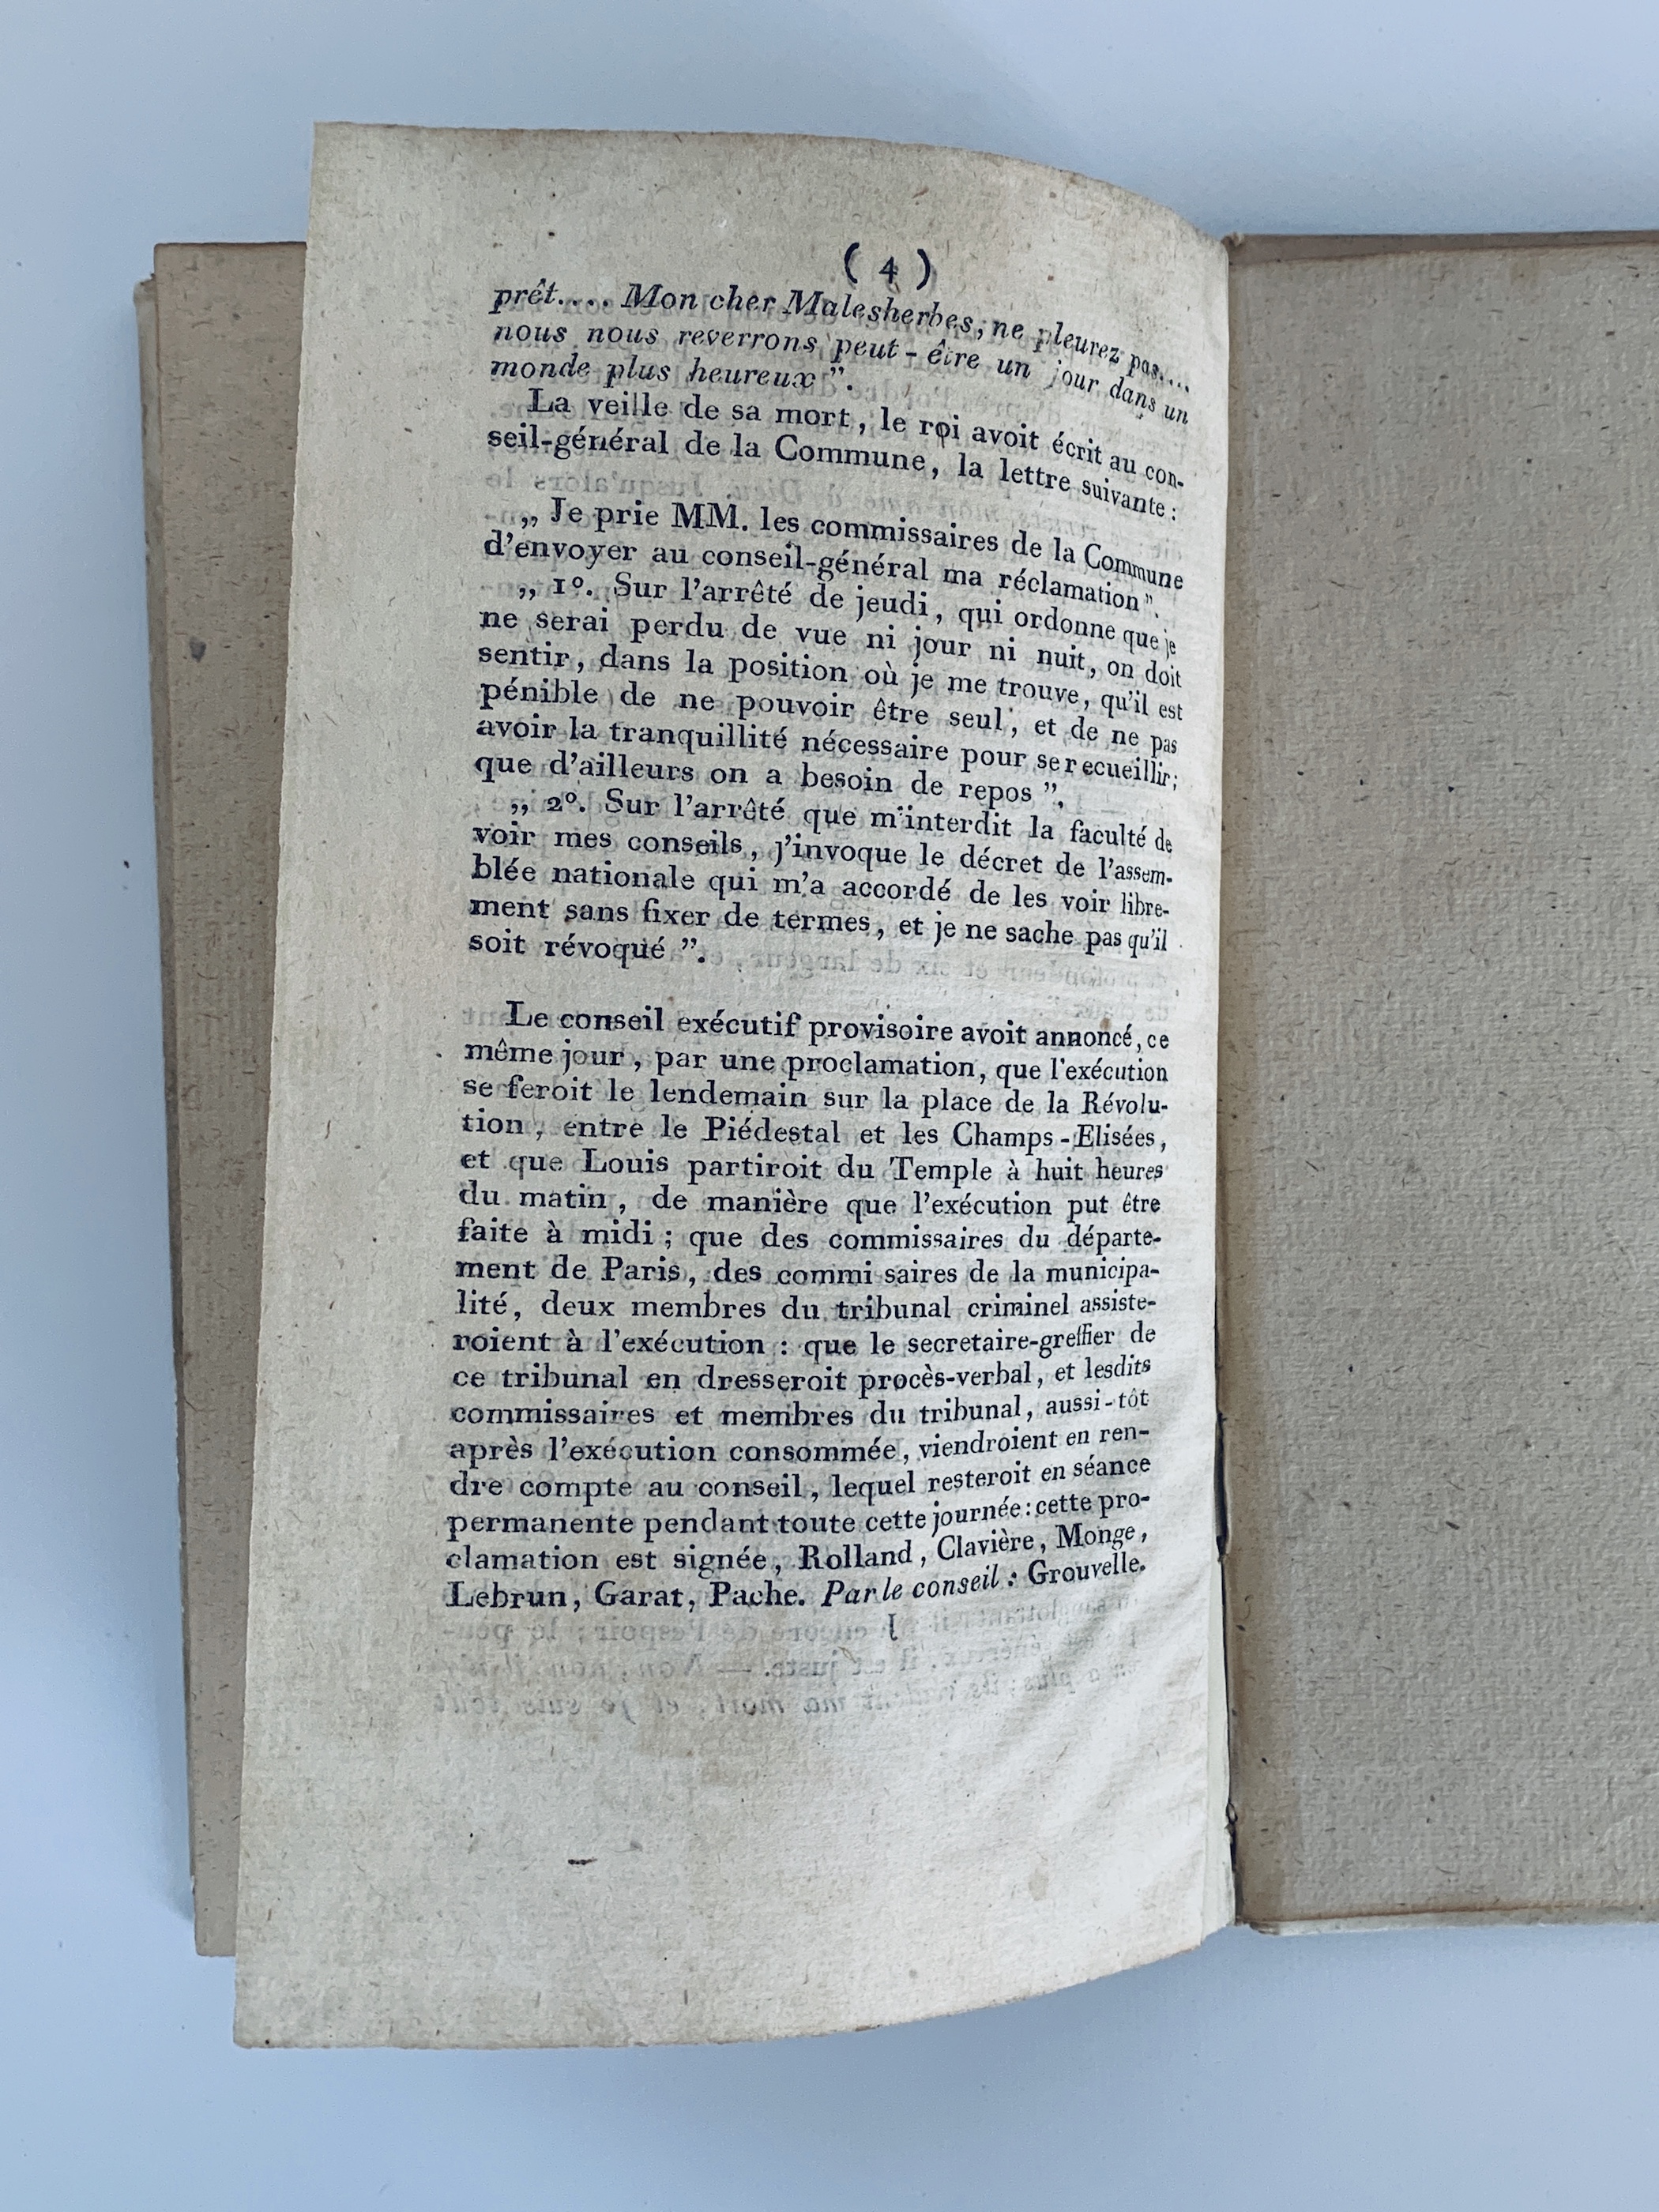 ( 4 )
prêt.... Mon cher Malesherbes, ne pleurez pas....
nous nous reverrons peut-être un jour dans un
monde plus heureux ”.
La veille de sa mort, le roi avoit écrit au con-
seil-général de la Commune, la lettre suivante :
„ Je prie MM. les commissaires de la Commune
d'envoyer au conseil-général ma réclamation ”.
„ 1°. Sur l'arrêté de jeudi, qui ordonne que je
ne serai perdu de vue ni jour ni nuit, on doit
sentir, dans la position où je me trouve, qu'il est
pénible de ne pouvoir être seul, et de ne pas
avoir la tranquillité nécessaire pour se recueillir;
que d'ailleurs on a besoin de repos ”.
„ 2°. Sur l'arrêté que m'interdit la faculté de
voir mes conseils, j'invoque le décret de l'assem-
blée nationale qui m'a accordé de les voir libre-
ment sans fixer de termes, et je ne sache pas qu'il
soit révoqué ”.
Le conseil exécutif provisoire avoit annoncé, ce
même jour, par une proclamation, que l'exécution
se feroit le lendemain sur la place de la Révolu-
tion, entre le Piédestal et les Champs-Elisées,
et que Louis partiroit du Temple à huit heures
du matin, de manière que l'exécution put être
faite à midi ; que des commissaires du départe-
ment de Paris, des commi saires de la municipa-
lité, deux membres du tribunal criminel assiste-
roient à l'exécution : que le secretaire-greffier de
ce tribunal en dresseroit procès-verbal, et lesdits
commissaires et membres du tribunal, aussi-tôt
après l'exécution consommée, viendroient en ren-
dre compte au conseil, lequel resteroit en séance
permanente pendant toute cette journée : cette pro-
clamation est signée, Rolland, Clavière, Monge,
Lebrun, Garat, Pache. Par le conseil : Grouvelle.